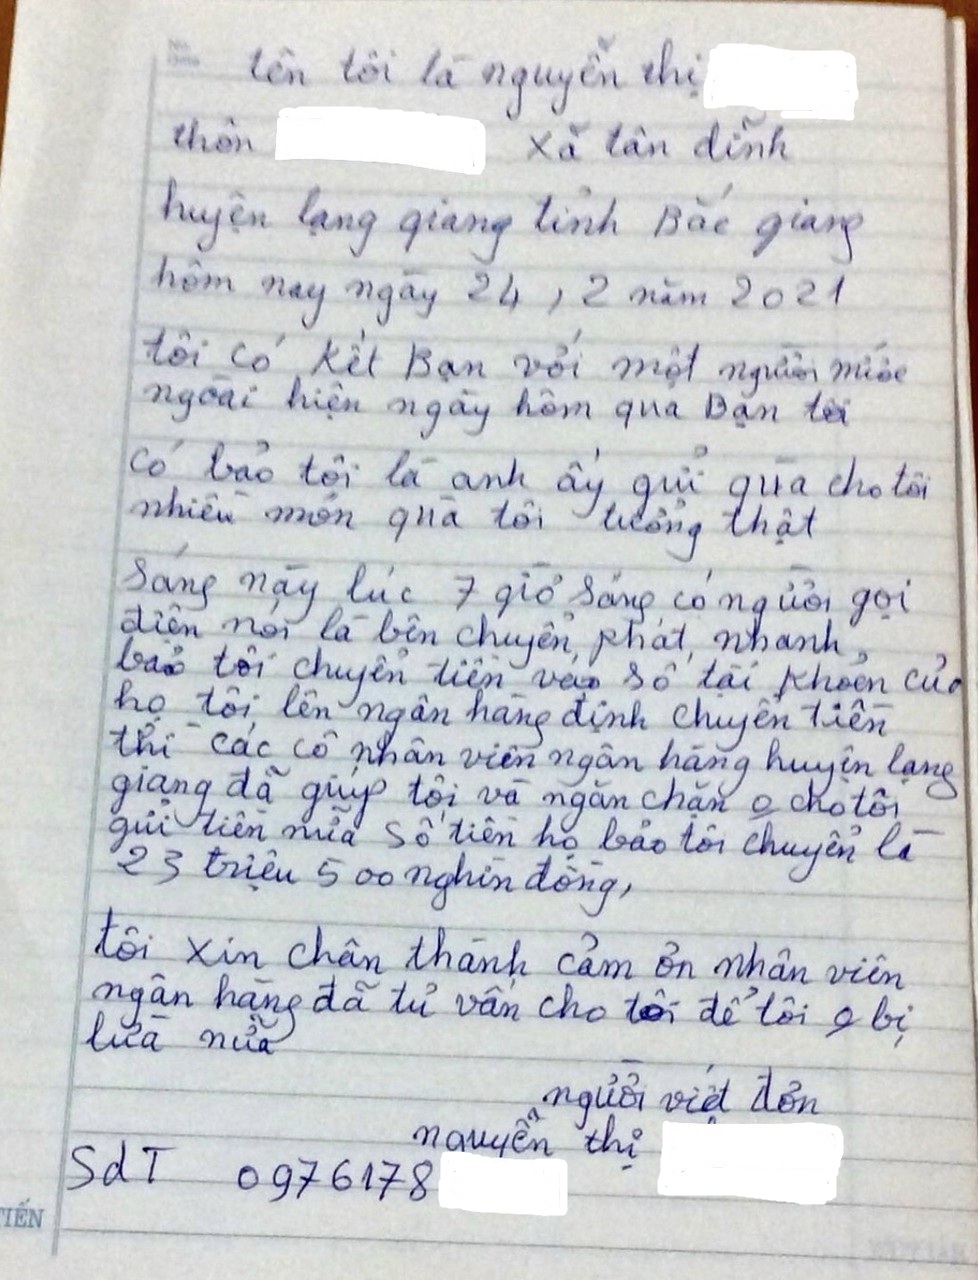 tên tôi là nguyễn thị
thôn xã tân dĩnh
huyện lạng giang tỉnh Bắc giang
hôm nay ngày 24, 2 năm 2021
tôi có kết Bạn với một người nước
ngoài hiện ngày hôm qua Bạn tôi
có bảo tôi là anh ấy gửi qùa cho tôi
nhiều món quà tôi tưởng thật
sáng nay lúc 7 giờ sáng có người gọi
điện nói là bên chuyển phát nhanh,
bảo tôi chuyển tiền vào số tài khoản của
họ tôi lên ngân hàng định chuyển tiền
thì các cô nhân viên ngân hàng huyện lạng
giang đã giúp tôi và ngăn chặn o cho tôi
gửi tiền nữa số tiền họ bảo tôi chuyển là
23 triệu 500 nghìn đồng,
tôi xin chân thành cảm ơn nhân viên
ngân hàng đã tư vấn cho tôi để tôi o bị
lừa nữa
người viết đơn
nguyễn thị
SdT 0976178
TIẾN